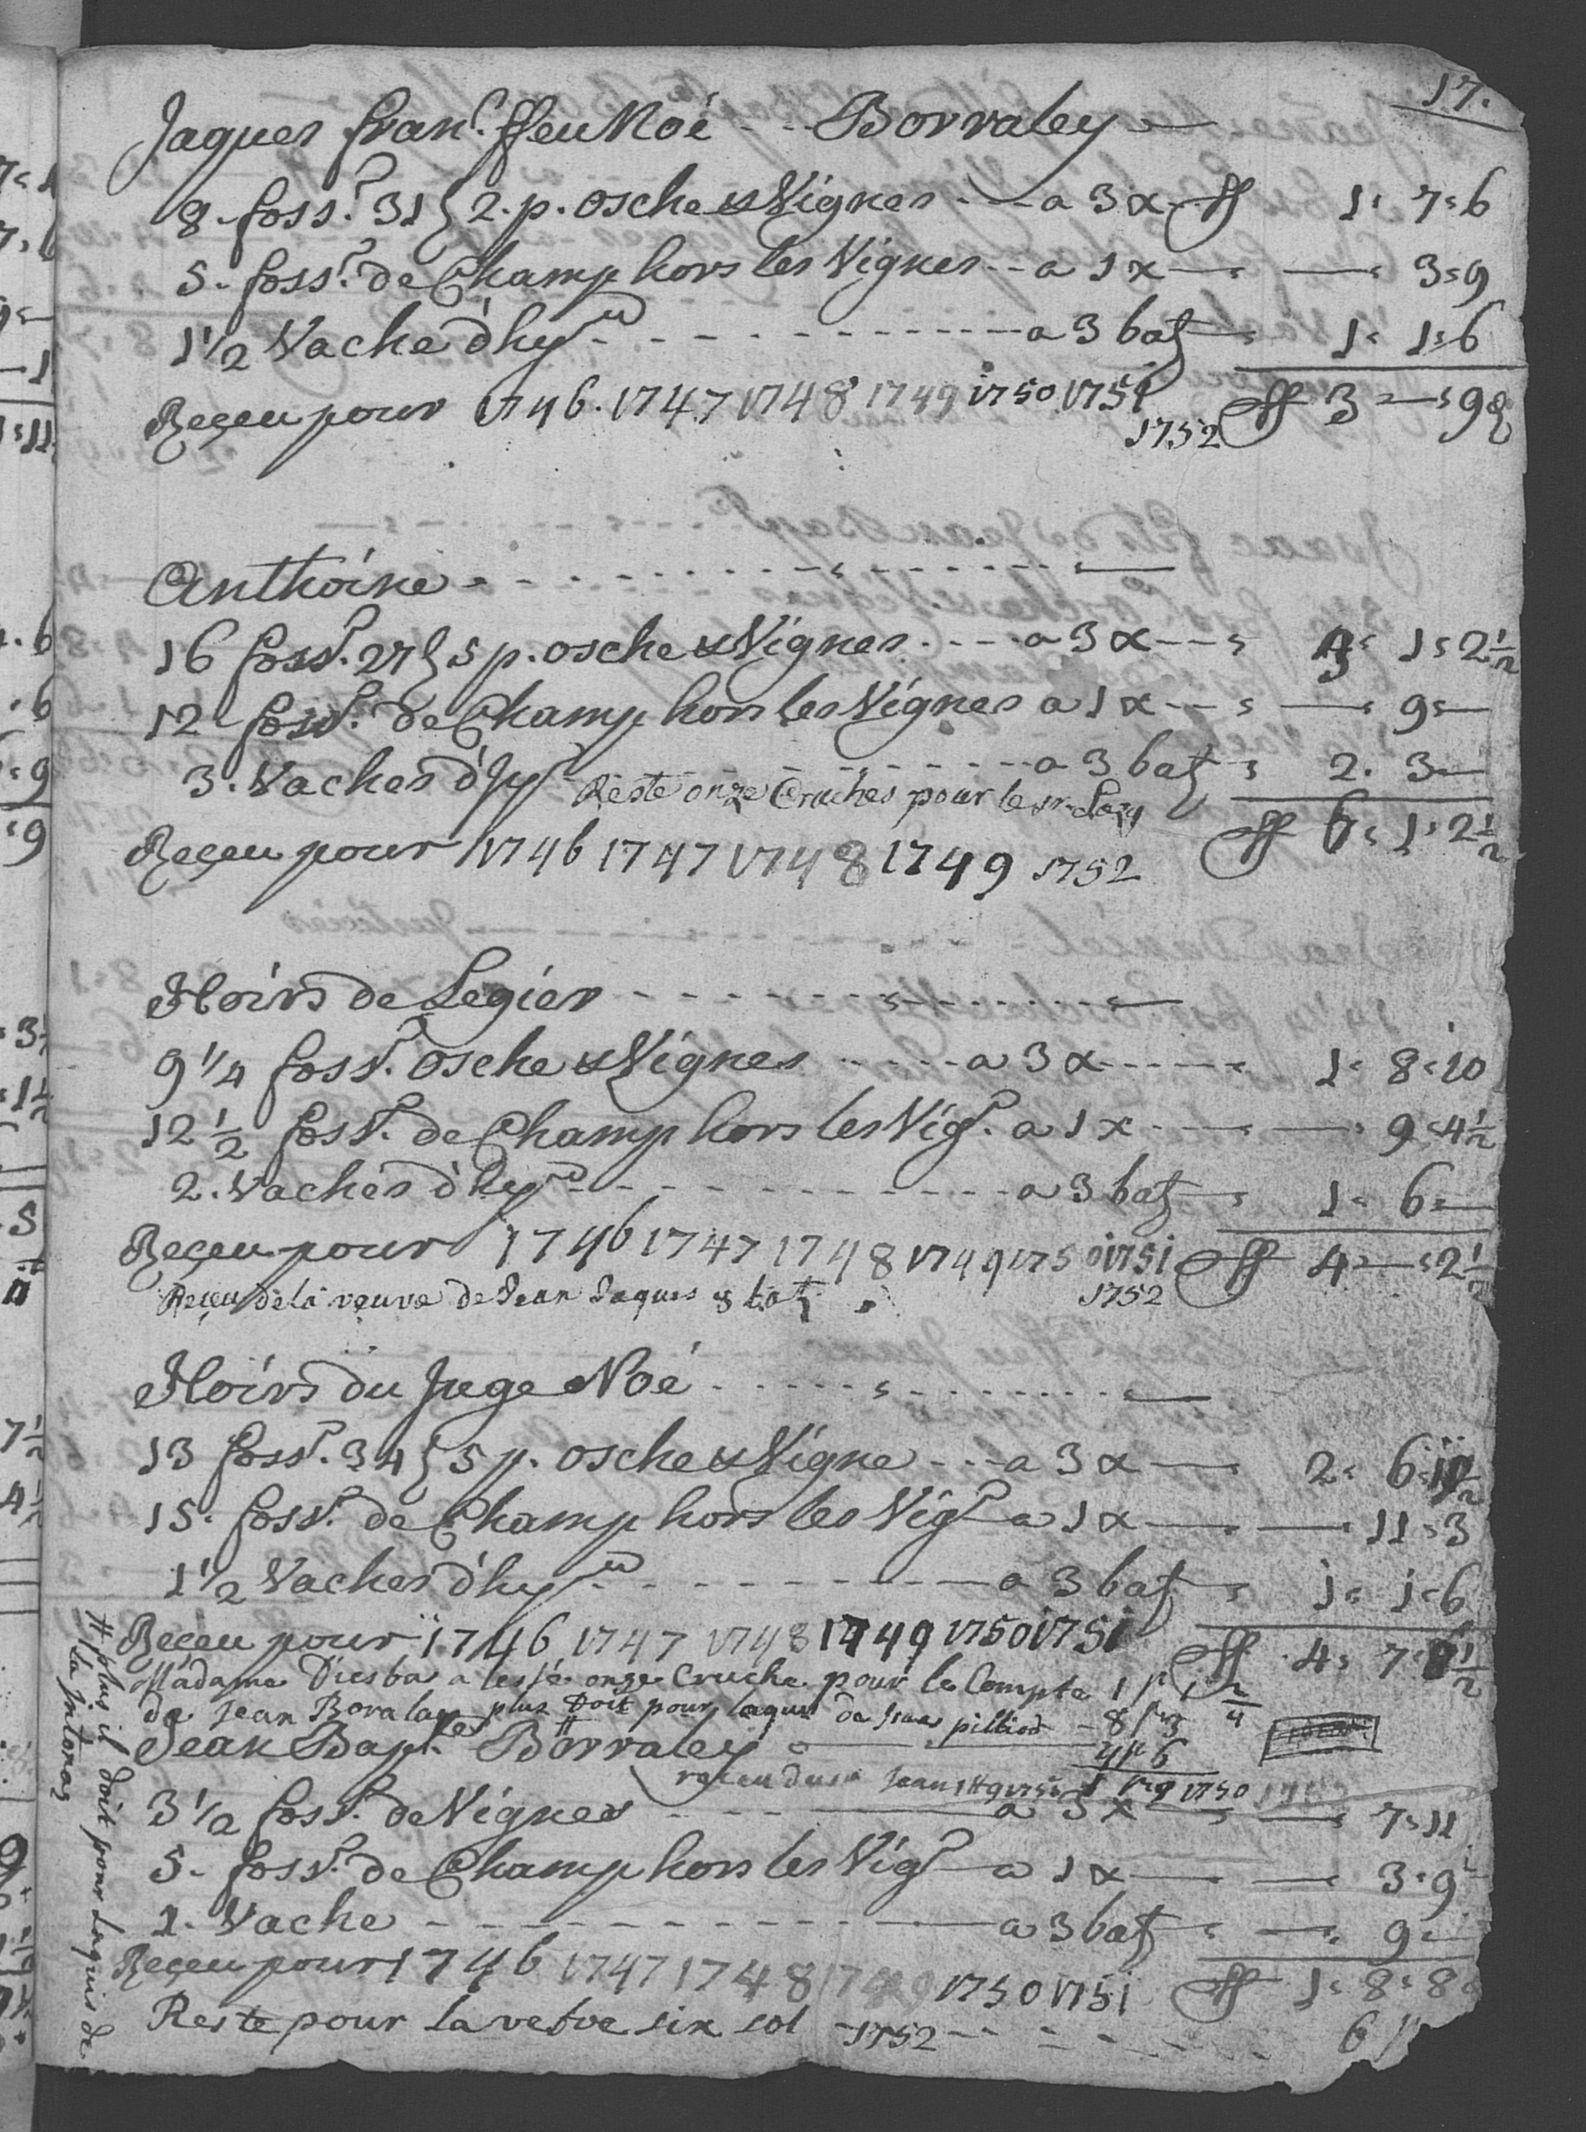 17.
Jaques Fran.s ffeu Noé - - - Borraley
8. foss.r 31 } 2. p. osche & Vignes - - a 3 x ff 1: 7: 6
5. foss.r de Champ hors les Vignes - - a 1 x — : — : 3: 9
1 1/2 Vache d'hy.r - - - a 3 batz — : 1: 1: 6
Reçeu pour 1746. 1747 1748 1749 1750 1751 ff 3 — : 9
1752
Anthoine - - -
16 foss.r 27 } 5 p. osche & Vignes - - - a 3 x — : 3: 1: 2 1/2
12 foss.r de Champ hors les Vignes a 1 x — : — : 9: —
3. Vaches d'hy.r - - - a 3 batz : 2. 3 —
Reste onze Cruches pour le sr.
Reçeu pour 1746 1747 1748 1749 1752 ff 6: 1: 2 1/2
Hoirs de Legier - - -
9 1/4 foss.r osche & Vignes - - - a 3 x - - - : 1: 8: 10
12 1/2 foss.r de Champ hors les Vig.s a 1 x — : — : 9: 4 1/2
2. Vaches d'hy.r - - - a 3 batz — : 1: 6: —
Reçeu pour 1746 1747 1748 1749 1750 1751 ff 4: — : 2 1/2
Reçeu de la veuve de Jean Jaques 8 batz 1752
Hoirs du Juge Noé - - -
13 foss.r 34 } 5 p. osche & Vigne - - - a 3 x — : 2: 6: 1/2
15. foss.r de Champ hors les Vig.s a 1 x — : — : 11: 3
1 1/2 Vaches d'hy.r - - - a 3 batz : 1: 1: 6
Reçeu pour 1746 1747 1748 1749 1750 1751 ff 4: 7: 1/2
Madame Diesbas a lessé onze Cruche pour le Compte
de Jean Boralay plus Doit pour laquis de pilliod - 8
Jean Bap.te Borraley
reçeu du 1750
3 1/2 foss.r de Vignes - - - a 3 x — : — : 7: 11
5. foss.r de Champ hors les Vig.s a 1 x — : — : 3: 9
1. Vache - - - a 3 batz : — : 9: —
Reçeu pour 1746 1747 1748 1749 1750 1751 ff 1: 8: 8
Reste pour la vefve six sol 1752 - - - 6
# plus il doit pour Laquis de
la